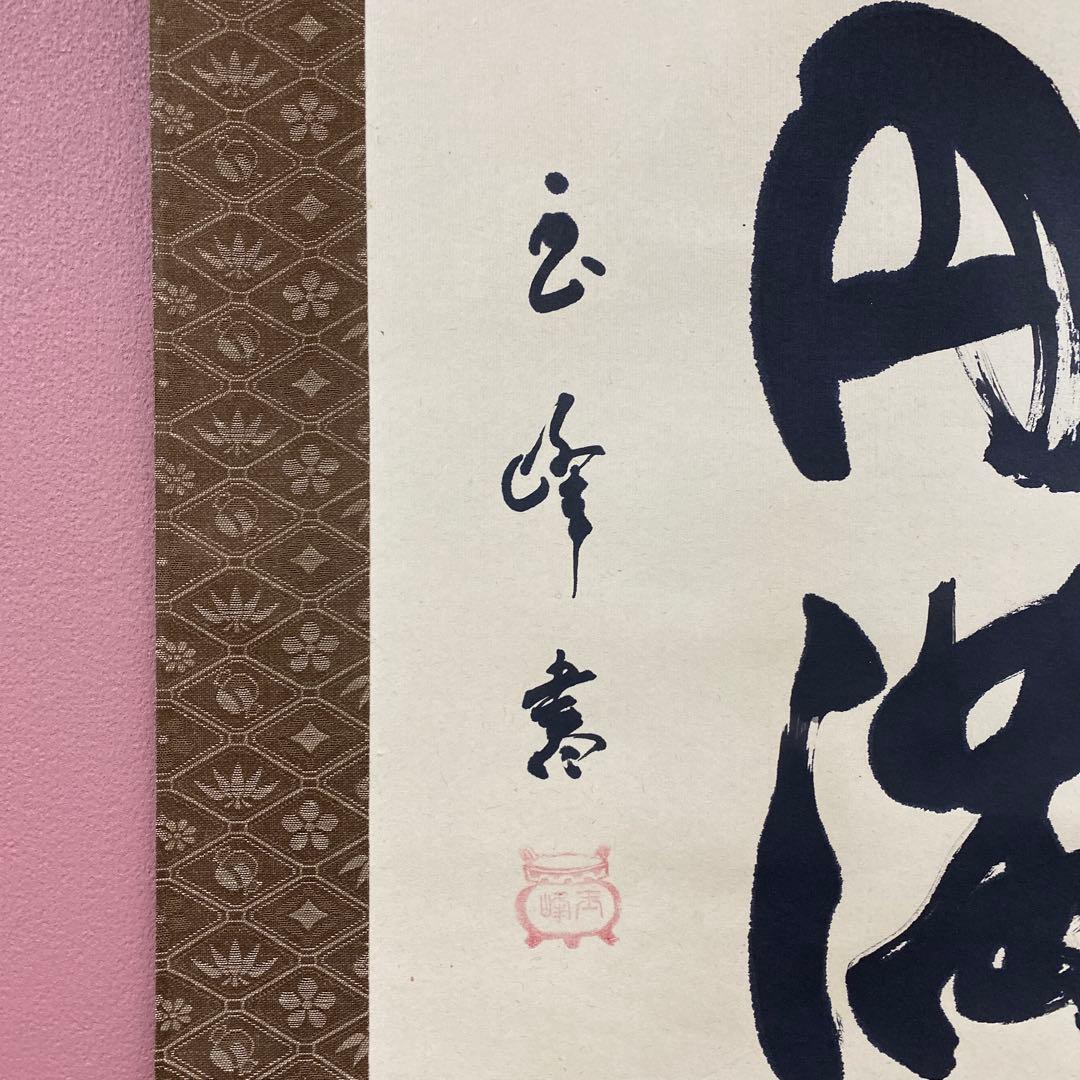 円満
玄峰書